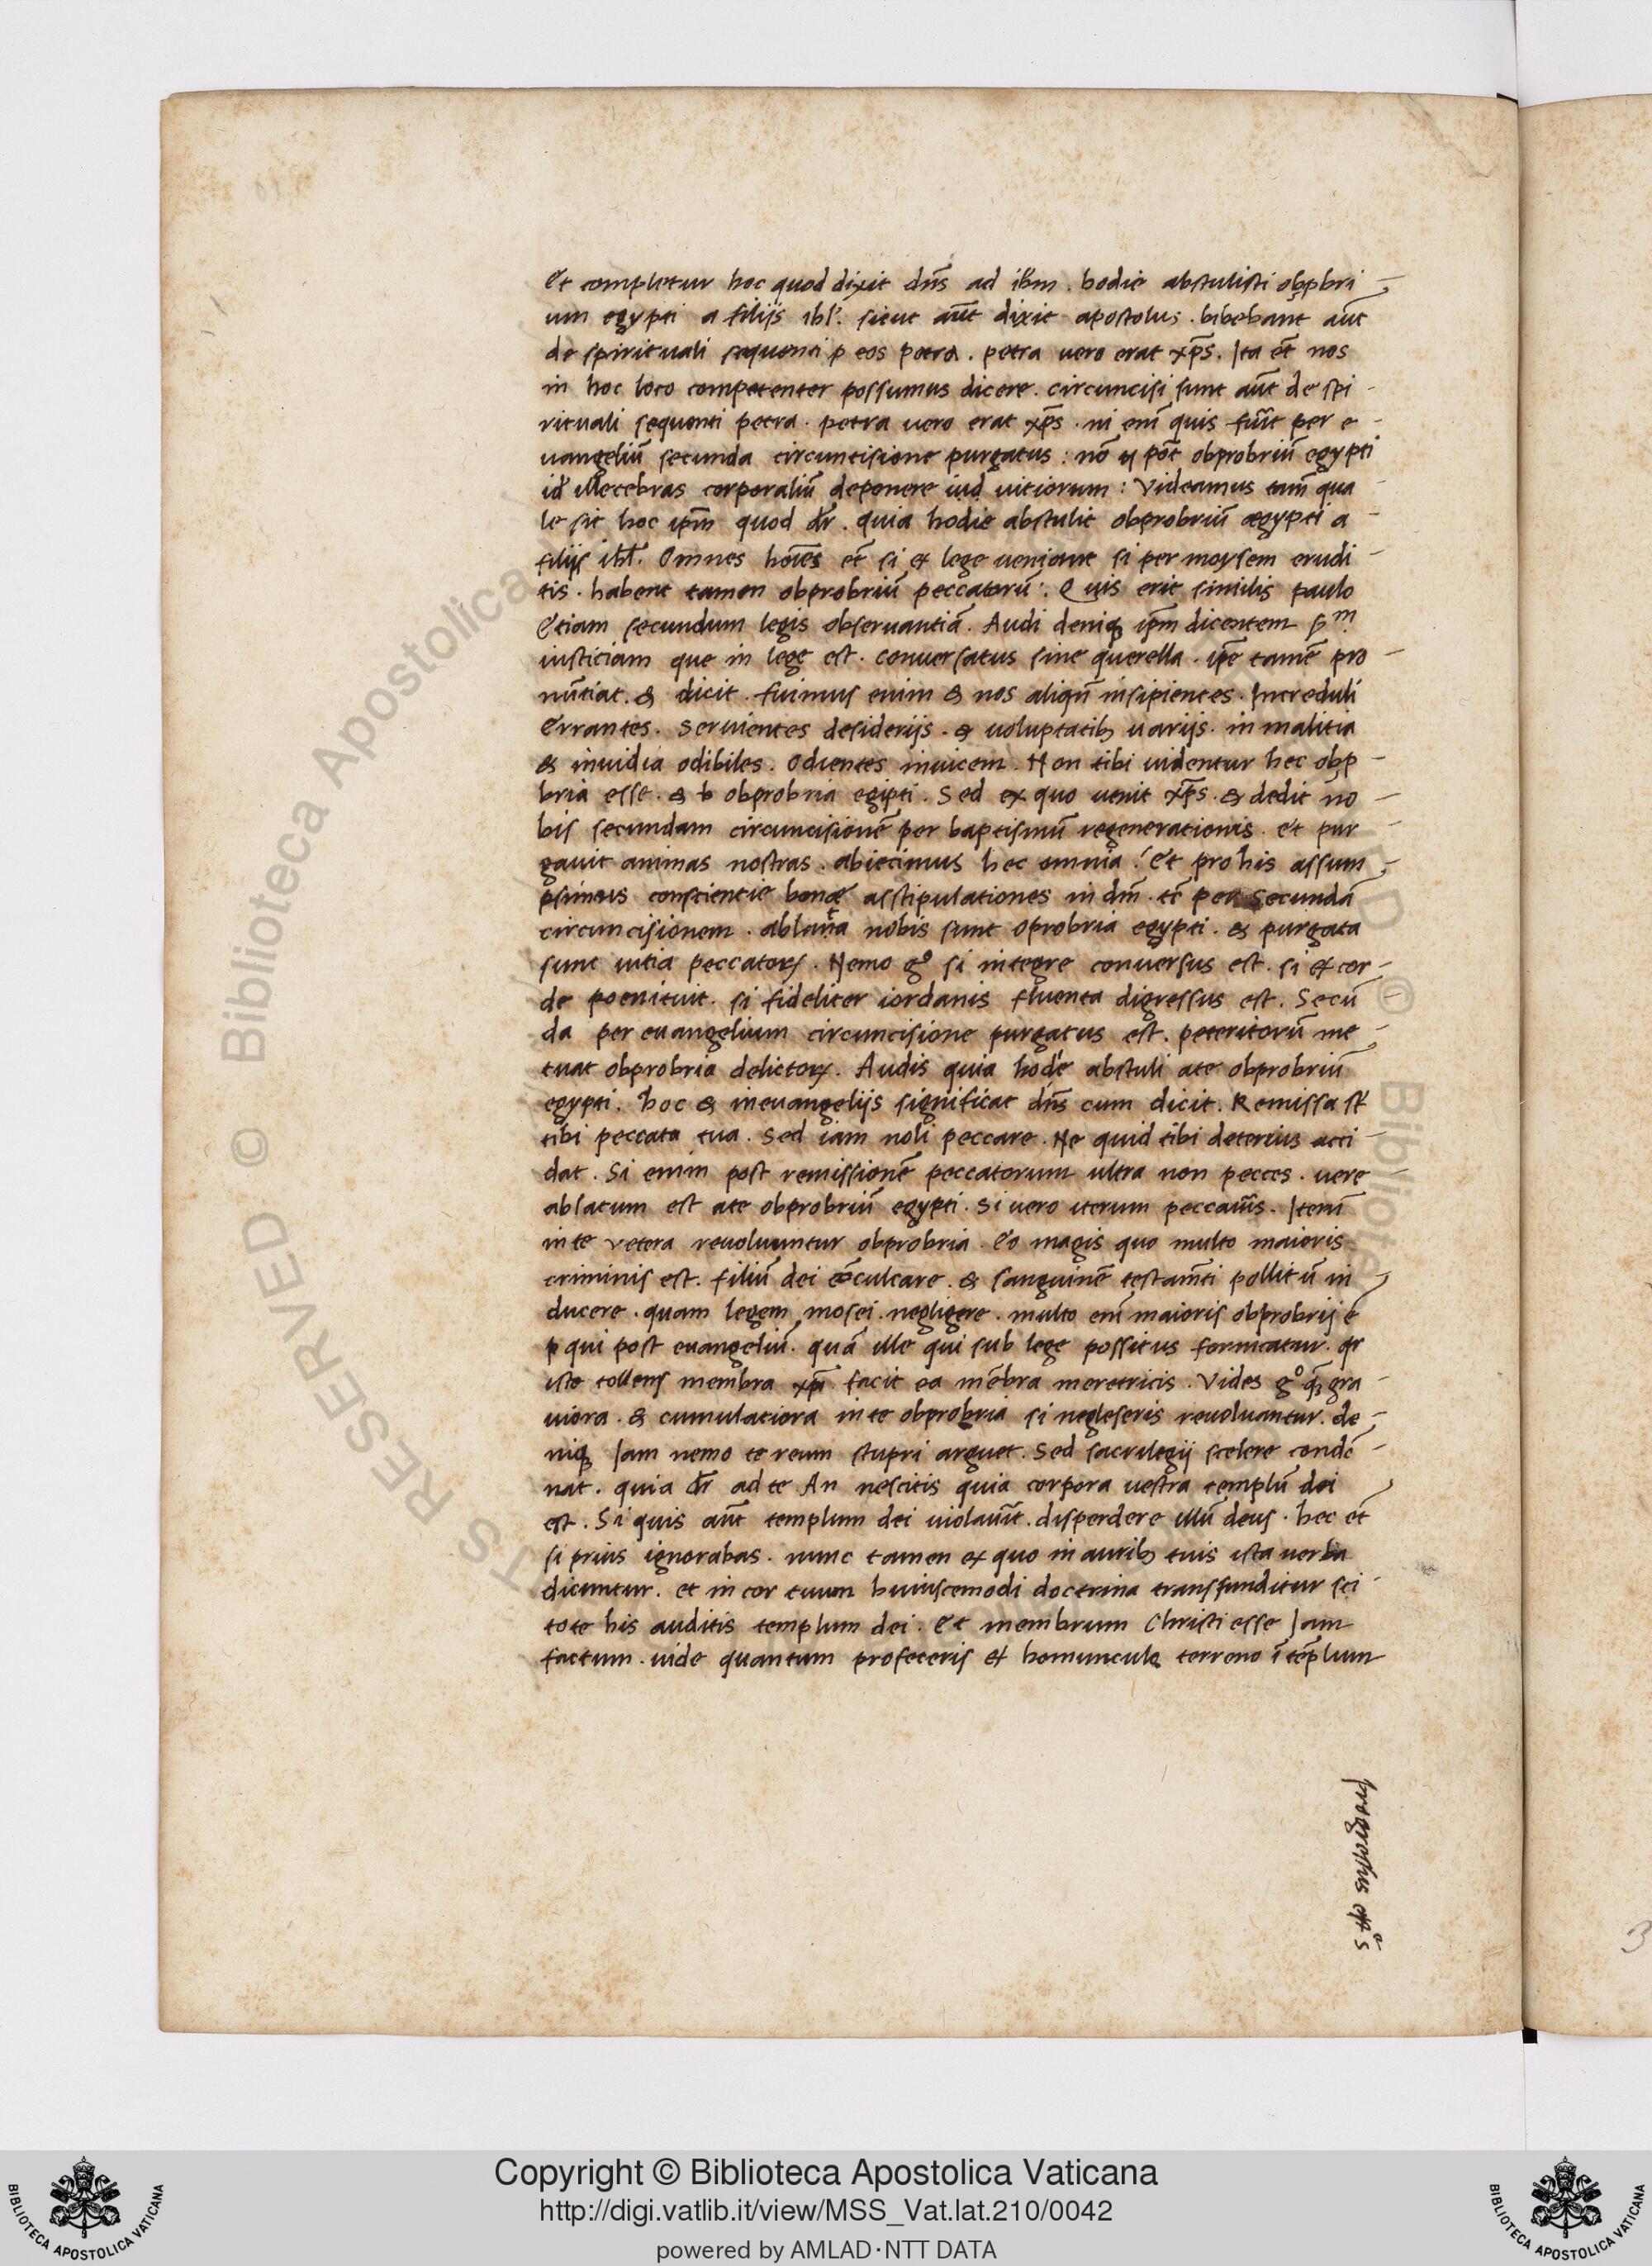 Et completur hoc quod dixit dn̄s ad ihm . hodie abstulisti obꝓbri
um egypti a filijs ihl'. sicut aut̄ dixit apostolus . bibebant aut̄
de spirituali sequenti ꝑ eos petra . petra vero erat xp̄s . Ita et̄ nos
in hoc loco competenter possumus dicere . circuncisi sunt aut̄ de spi
rituali sequenti petra . petra vero erat xp̄s . ni eni̅ quis fuīt per e
uangeliū secunda circuncisione purgatus : nō pōt obprobriū egypti
id illecebras corporaliū deponere vitiorum : Videamus tam̄ qua
le sit hoc ip̄m quod dr̄ . quia hodie abstulit obprobriū ægypti a
filijs ihl'. Omnes hoīes et̄ si ex lege veniant si per moysem erudi
tis . habent tamen obprobriū peccatorū : Quis erit similis paulo
Etiam secundum legis obseruantiā . Audi deniqꝫ ip̄m dicentem sᵐ
iusticiam que in lege est . conuersatus sine querella . ip̄e tamē pro
nūtiat . & dicit . fuimus enim & nos aliqn̄ insipientes . Increduli
Errantes . Seruientes desiderijs . & uoluptatibꝫ uarijs . in malitia
& inuidia odibiles . Odientes inuicem . Non tibi uidentur hec obꝓ
bria esse . & obprobria egipti . Sed ex quo venit xp̄s . & dedit no
bis secundam circuncisionē per baptismū regenerationis . et pur
gauit animas nostras . abiecimus hec omnia : Et pro his assum
psimus conscientie bonæ asstipulationes in dm̄ . tc̄ per secundā
circuncisionem . ablata nobis sunt oprobria egypti . & purgata
sunt uitia peccatorꝝ . Nemo gᵒ si integre conuersus est . si ex cor
de poenituit . si fideliter iordanis fluenta digressus est . Secū
da per euangelium circuncisione purgatus est . peteritorū me
tuat obprobria delictorꝝ . Audis quia hodie abstuli ate obprobriū
egypti . hoc & ineuangelijs significat dn̄s cum dicit . Remissa st̄
tibi peccata tua . Sed iam noli peccare . Ne quid tibi deterius acci
dat . Si enim post remissionē peccatorum ultra non pecces . vere
ablatum est ate obprobriū egypti . Si vero iterum peccaūis . Iterū
in te vetera reuoluuntur obprobria . Eo magis quo multo maioris
criminis est . filiū dei cōculcare . & sanguinē testam̄ti pollitū in
ducere . quam legem mosei negligere . multo eni̅ maioris obprobrij ē
qui post euangeliū . quā ille qui sub lege possitus fornicatur . qr
iste tollens membra xp̄i facit ea mēbra meretricis . Vides gᵒ qꝫ gra
uiora . & cumulatiora in te obprobria si neglexeris reuoluantur . de
niqꝫ Iam nemo te reum stupri arguet . Sed sacrilegij scelere condē
nat . quia dr̄ ad te An nescitis quia corpora uestra templū dei
est . Si quis aut̄ templum dei violauīt . disperdere illū deus . hec et̄
si prius ignorabas . nunc tamen ex quo in auribꝫ tuis ista verba
dicuntur . et in cor tuum huiuscemodi doctrina transfunditur sci
tote his auditis templum dei . Et membrum Christi esse Iam
factum . uide quantum profeceris ex homuncule terreno ī tēplum
progressus
Copyright © Biblioteca Apostolica Vaticana
http://digi.vatlib.it/view/MSS_Vat.lat.210/0042
powered by AMLAD·NTT DATA
BIBLIOTECA APOSTOLICA VATICANA
BIBLIOTECA APOSTOLICA VATICANA